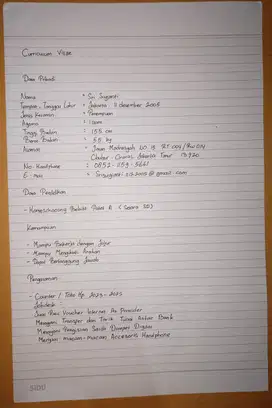 Curriculum Vitae
Data Pribadi
Nama : Sri Sugianti
Tempat, Tanggal Lahir : Jakarta, 11 desember 2005
Jenis Kelamin : Perempuan
Agama : Islam
Tinggi Badan : 155 cm
Berat Badan : 55 kg
Alamat : Jalan Madrasyah NO 18 RT 004 / RW 004
Jakarta Timur 13720
No Handphone
E-mail
Data Pendidikan
- Homeschooling (Setara SD)
Kemampuan
- Mampu Bekerja dengan Jujur
- Mampu Mengikuti Arahan
- Dapat Bertanggung Jawab
Pengalaman
- Counter / Toko Hp 2023 - 2025
Jobdesk :
Jual Beli Voucher Internet All Provider
Melayani Transfer dan Tarik Tunai Antar Bank
Melayani Pengisian Saldo Dompet Digital
Menjual Macam-Macam Accesoris Handphone